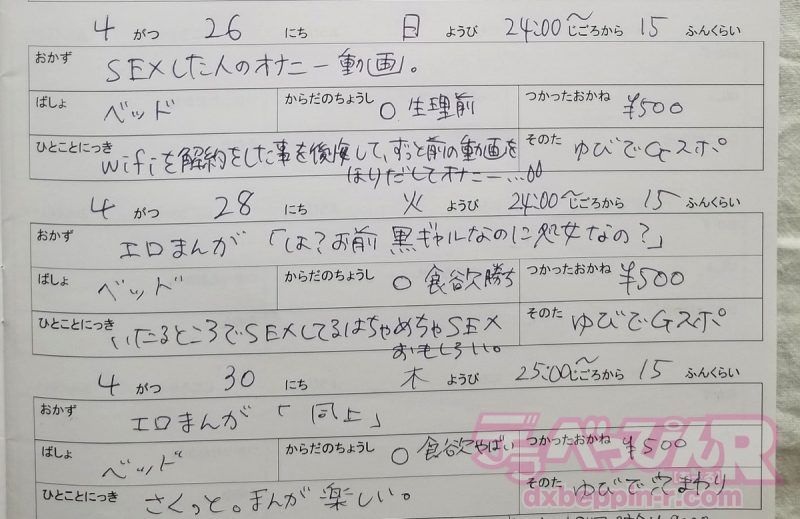 4 がつ 26 にち 日 ようび 24:00〜 じごろから 15 ふんくらい
おかず SEXした人のオナニー動画。
ばしょ ベッド からだのちょうし ○ 生理前 つかったおかね ¥500
ひとことにっき wifiを解約をした事を後悔して、ずっと前の動画を そのた ゆびでGスポ
ほりだしてオナニー…
4 がつ 28 にち 火 ようび 24:00〜 じごろから 15 ふんくらい
おかず エロまんが「は?お前 黒ギャルなのに処女なの?」
ばしょ ベッド からだのちょうし ○ 食欲勝ち つかったおかね ¥500
ひとことにっき いたるところでSEXしてるはちゃめちゃSEX そのた ゆびでGスポ
おもしろい。
4 がつ 30 にち 木 ようび 25:00〜 じごろから 15 ふんくらい
おかず エロまんが「同上」
ばしょ ベッド からだのちょうし ○ 食欲やばい つかったおかね ¥500
ひとことにっき さくっと。まんが楽しい。 そのた ゆびで まわり
デラべっぴんR
dxbeppin-r.com